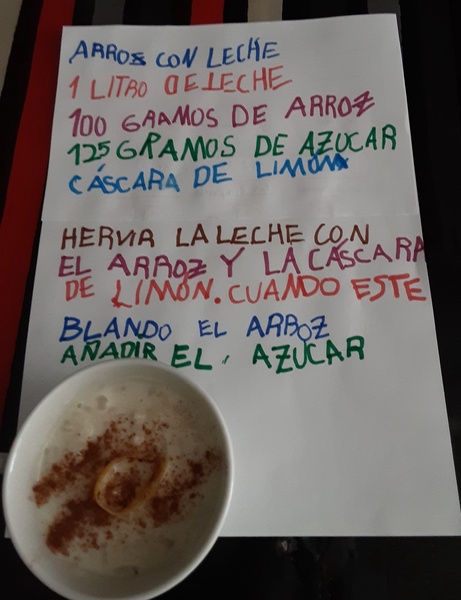 ARROZ CON LECHE
1 LITRO DE LECHE
100 GRAMOS DE ARROZ
125 GRAMOS DE AZUCAR
CÁSCARA DE LIMÓN
HERVIR LA LECHE CON
EL ARROZ Y LA CÁSCARA
DE LIMÓN. CUANDO ESTE
BLANDO EL ARROZ
AÑADIR EL AZUCAR